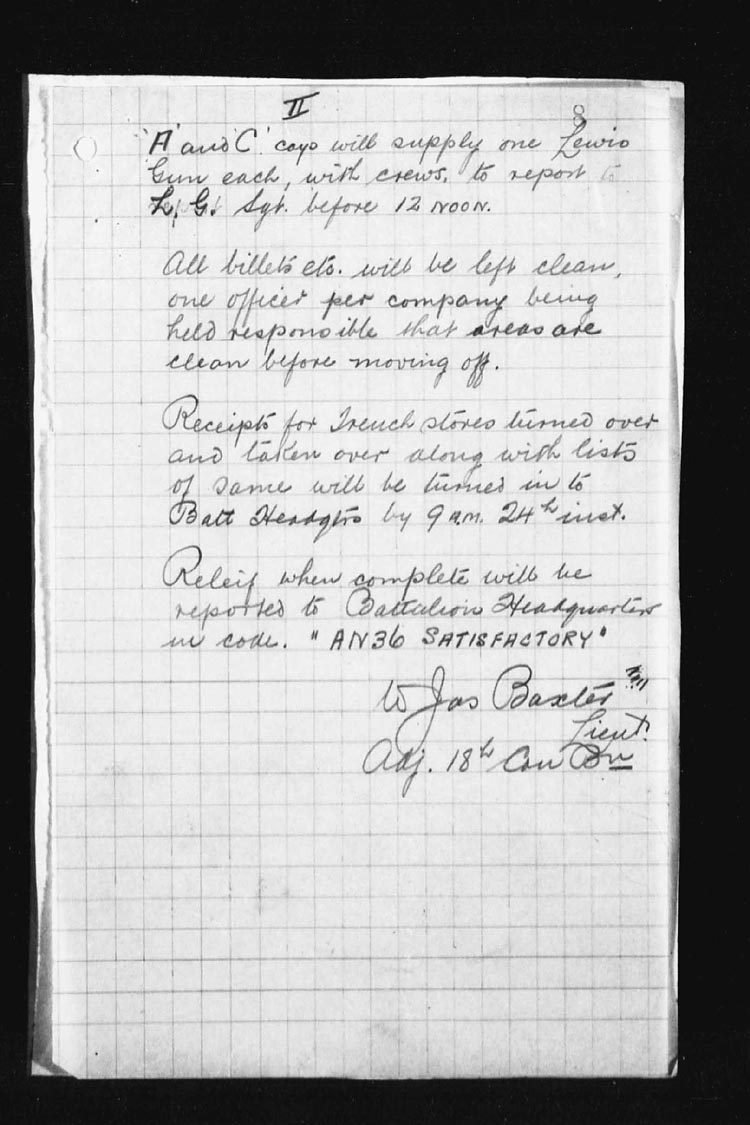 II
8
'A' and 'C' coys will supply one Lewis
Gun each, with crews, to report to
L, G. Sgt. before 12 NOON.
All billets etc. will be left clean,
one officer per company being
held responsible that areas are
clean before moving off.
Receipts for Trench stores turned over
and taken over along with lists
of same will be turned in to
Batt Headqtrs by 9 A.M. 24th inst.
Releif when complete will be
reported to Battalion Headquarters
in code. "AN36 SATISFACTORY"
W Jas Baxter
Lieut.
Adj. 18th Can Bn